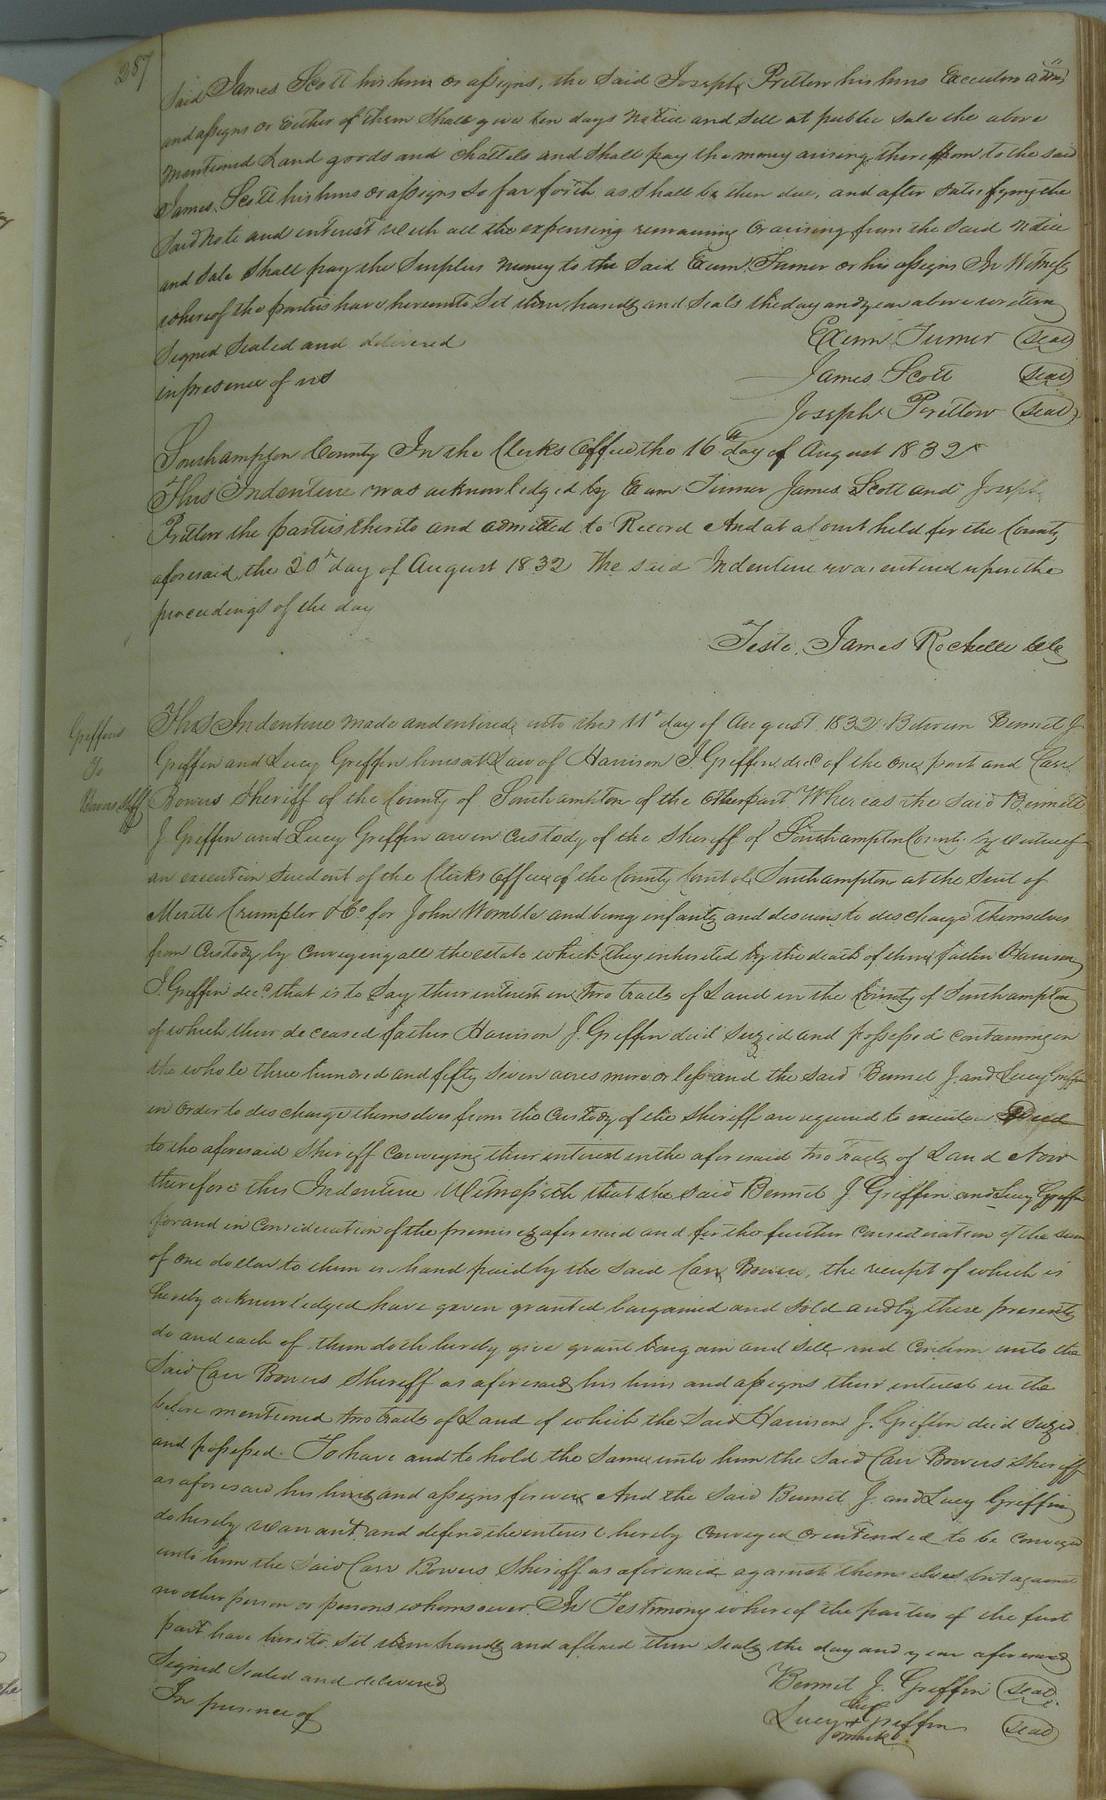 287
Said James Scott his heirs or assigns, the said Joseph Pretlow his heirs Executors adms
and assigns or Either of them Shall give ten days Notice and Sell at public Sale the above
mentioned Land goods and chattels and Shall pay the money arising therefrom to the said
James Scott his heirs or assigns so far forth as Shall be then due, and after Satisfying the
Said Note and interest with all the expensing remaining or arising from the Said Notice
and Sale Shall pay the Surplus money to the Said Exum Turner or his assigns In Witness
whereof the parties have hereunto Set their hands and Seals the day and year above written
Signed Sealed and delivered
in presence of us
Exum Turner (seal)
James Scott (seal)
Joseph Pretlow (seal)
Southampton County In the Clerks Office the 16th day of August 1832
This Indenture was acknowledged by Exum Turner James Scott and Joseph
Pretlow the parties thereto and admitted to Record And at a Court held for the County
aforesaid the 20th day of August 1832 The said Indenture was entered upon the
proceedings of the day
Teste. James Rochelle Clk
Griffins
To
Bowers Shff
This Indenture made and entered into this 11th day of August 1832 Between Bennet J
Griffin and Lucy Griffin heirs at Law of Harrison J. Griffin decd of the one part and Carr
Bowers Sheriff of the County of Southampton of the other part Whereas the said Bennett
J Griffin and Lucy Griffin are in Custody of the Sheriff of Southampton County by virtue of
an execution Sued out of the Clerks Office of the County Court of Southampton at the Suit of
Meritt Crumpler & Co for John Womble and being infants and desirous to discharge themselves
from Custody by Conveying all the estate which they inherited by the death of their father Harrison
J. Griffin decd that is to Say their interest in two tracts of Land in the County of Southampton
of which their deceased father Harrison J. Griffin died Seized and possessed containing in
the whole three hundred and fifty Seven acres more or less and the said Bennet J. and Lucy Griffin
in order to discharge themselves from the Custody of the Sheriff are required to execute a Deed
to the aforesaid Sheriff Conveying their interest in the aforesaid two Tracts of Land Now
therefore this Indenture Witnesseth that the said Bennet J Griffin and Lucy Griffin
for and in Consideration of the premises aforesaid and for the further Consideration of the Sum
of one dollar to them in hand paid by the said Carr Bowers, the receipt of which is
hereby acknowledged have given granted bargained and Sold and by these presents
do and each of them doth hereby give grant bargain and Sell and Confirm unto the
Said Carr Bowers Sheriff as aforesaid his heirs and assigns their interest in the
before mentioned two tracts of Land of which the Said Harrison J. Griffin died Seized
and possessed. To have and to hold the Same unto him the said Carr Bowers Sheriff
as aforesaid his heirs and assigns forever And the Said Bennet J. and Lucy Griffin
do hereby warrant and defend the interest hereby Conveyed or intended to be Conveyed
unto him the Said Carr Bowers Sheriff as aforesaid against themselves but against
no other person or persons whomsoever. In Testimony whereof the parties of the first
part have hereto Set their hands and affixed their Seals the day and year aforesaid
Signed Sealed and delivered
In presence of
Bennet J. Griffin (seal)
her
Lucy + Griffin (seal)
mark